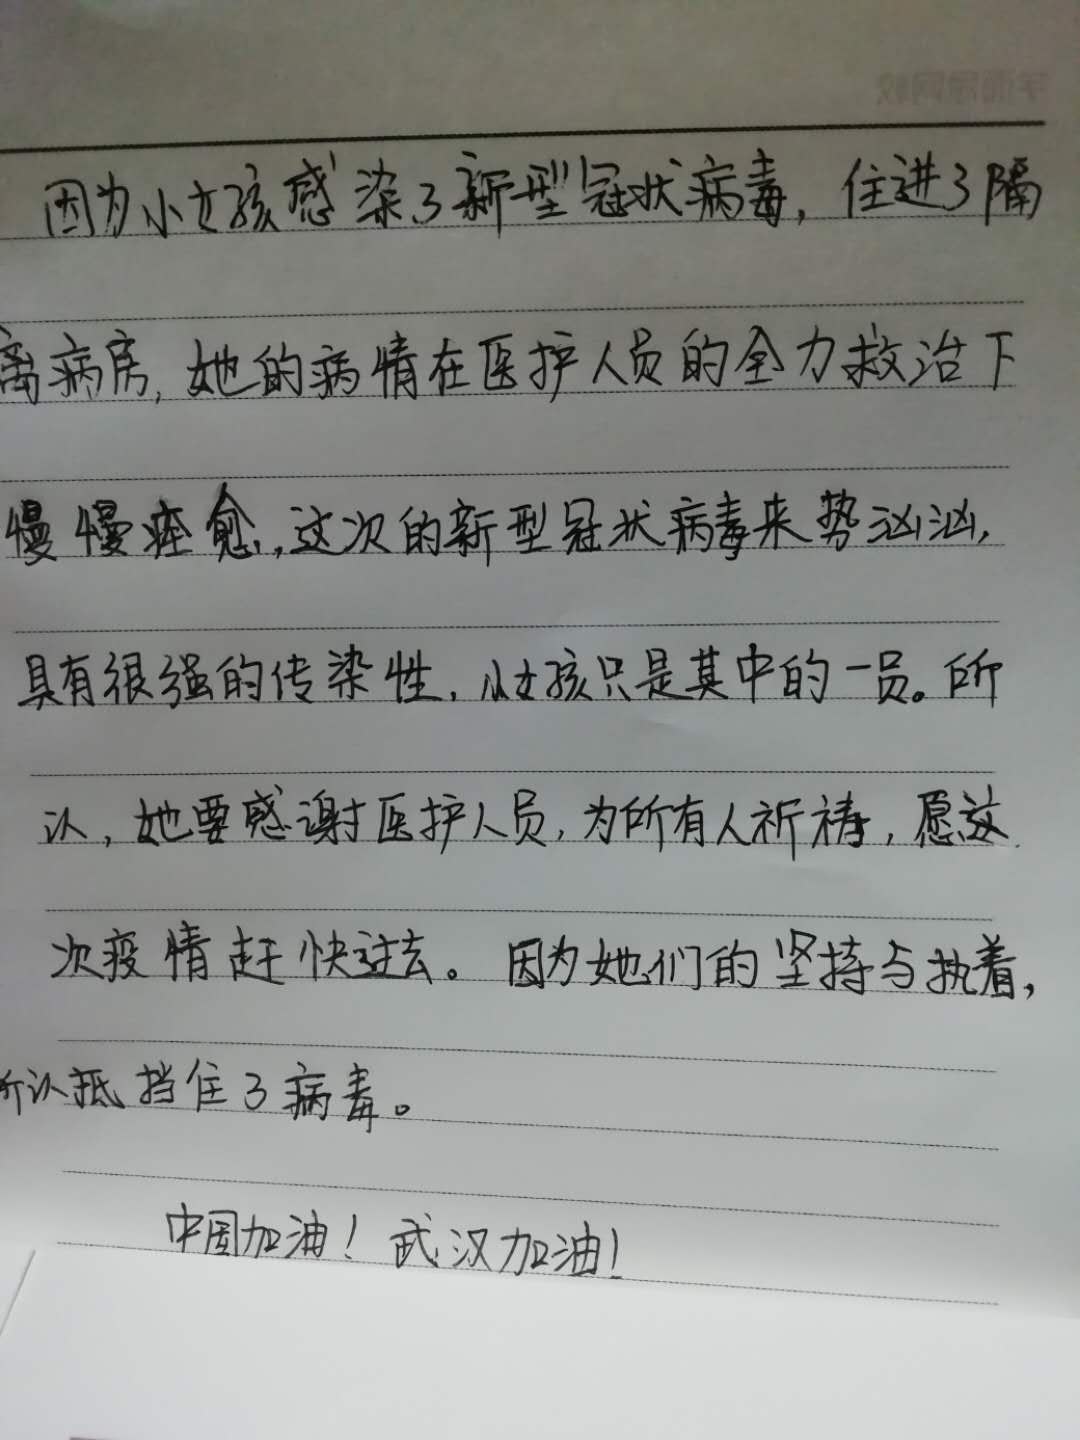 因为小女孩感染了新型冠状病毒，住进了隔
离病房，她的病情在医护人员的全力救治下
慢慢痊愈，这次的新型冠状病毒来势汹汹，
具有很强的传染性，小女孩只是其中的一员。所
以，她要感谢医护人员，为所有人祈祷，愿这
次疫情赶快过去。因为她们的坚持与执着，
所以抵挡住了病毒。
中国加油！武汉加油！